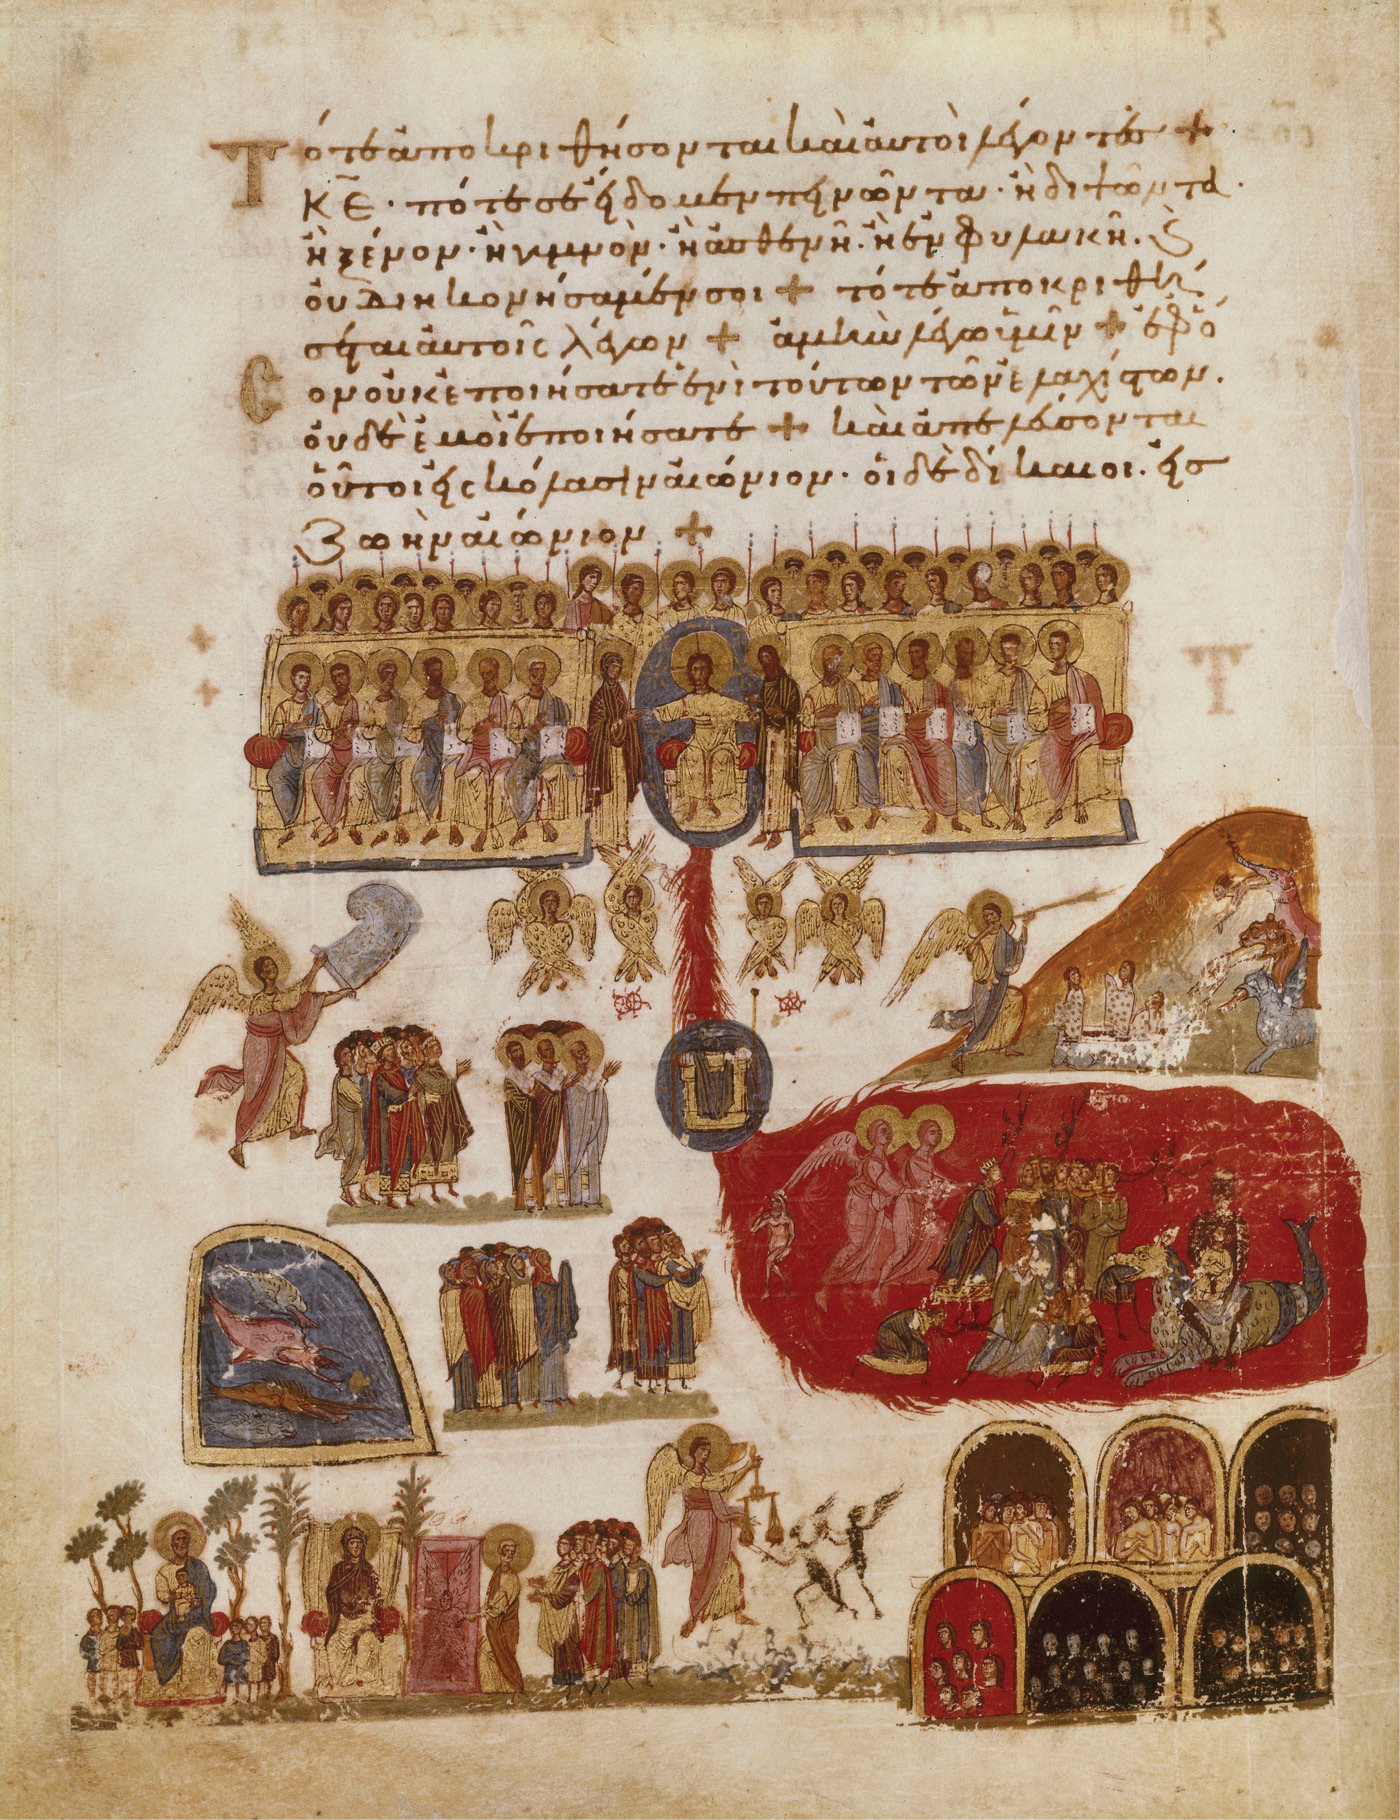 Τότε ἀποκριθήσονται καὶ αὐτοὶ λέγοντες +
Κ̅Ε̅· πότε σὲ εἴδομεν πεινῶντα· ἢ διψῶντα·
ἢ ξένον· ἢ γυμνὸν· ἢ ἀσθενῆ· ἢ ἐν φυλακῆ· ϗ
οὐ διηκονήσαμέν σοι + τότε ἀποκριθή
σεται αὐτοῖς λέγων + ἀμὴν λέγω ὑμῖν + ἐφ ὅ
σον οὐκ ἐποιήσατε ἑνὶ τούτων τῶν ἐλαχίστων·
οὐδὲ ἐμοὶ ἐποιήσατε + καὶ ἀπελεύσονται
οὗτοι εἰς κόλασιν αἰώνιον· οἱ δὲ δίκαιοι· εἰς
ζωὴν αἰώνιον +